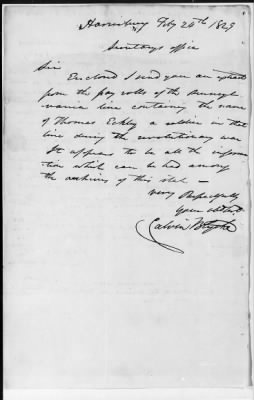 Harrisburg Feby 24th 1829
Secretarys office
Sir
Enclosed I send you an extract
from the pay rolls of the Pennsyl
vania line containing the name
of Thomas Eckly a soldier in that
line during the revolutionary war
It appears to be all the informa
tion which can be had among
the archives of this state —
Very Respectfully
your obt svt
Calvin Blythe